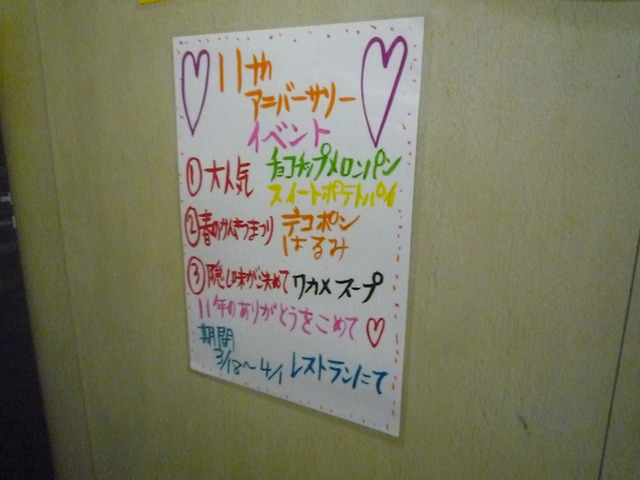 11th
アニバーサリー
イベント
①大人気 チョコチップメロンパン
スイートポテトパイ
②春のかんきつまつり デコポン
はるみ
③隠し味が決めて ワカメスープ
11年のありがとうをこめて♡
期間
3/13〜4/1 レストランにて